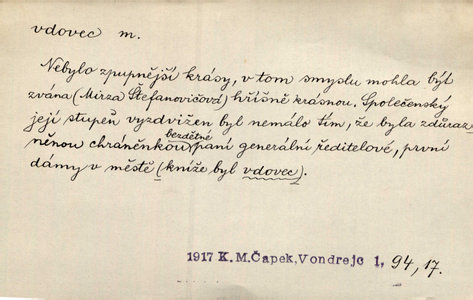 vdovec m.
Nebylo zpupnější krásy, v tom smyslu mohla být
zvána (Mirza Stefanovičová) hříšně krásnou. Společenský
její stupeň vyzdvižen byl nemálo tím, že byla zdůraz
něnou chráněnkou bezdětné paní generální ředitelové, první
dámy v městě (kníže byl vdovec).
1917 K.M.Čapek, Vondrejc 1, 94, 17.